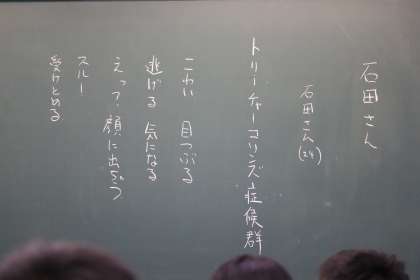 石田さん
石田さん(24)
トリーチャーコリンズ症候群
こわい 目つぶる
逃げる 気になる
えって? 顔に出ちゃう
スルー
受けとめる